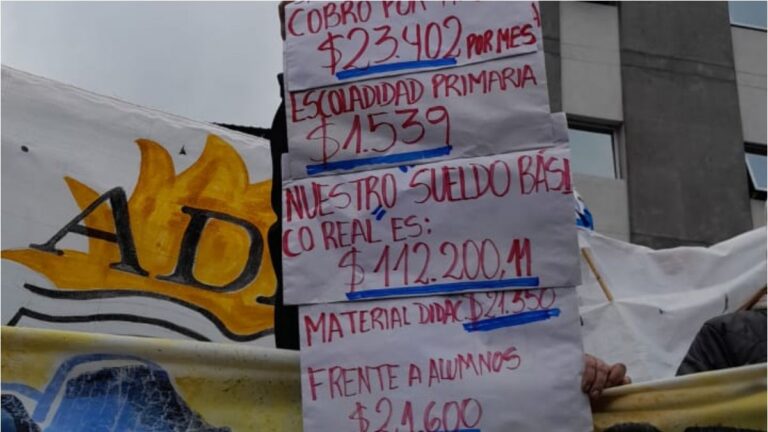 COBRO POR
$23.402 POR MES
ESCOLADIDAD PRIMARIA
$1.539
NUESTRO "SUELDO BÁSI
CO REAL ES:
$112.200,11
MATERIAL DIDAC. $21.350
FRENTE A ALUMNOS
$21.600
AD